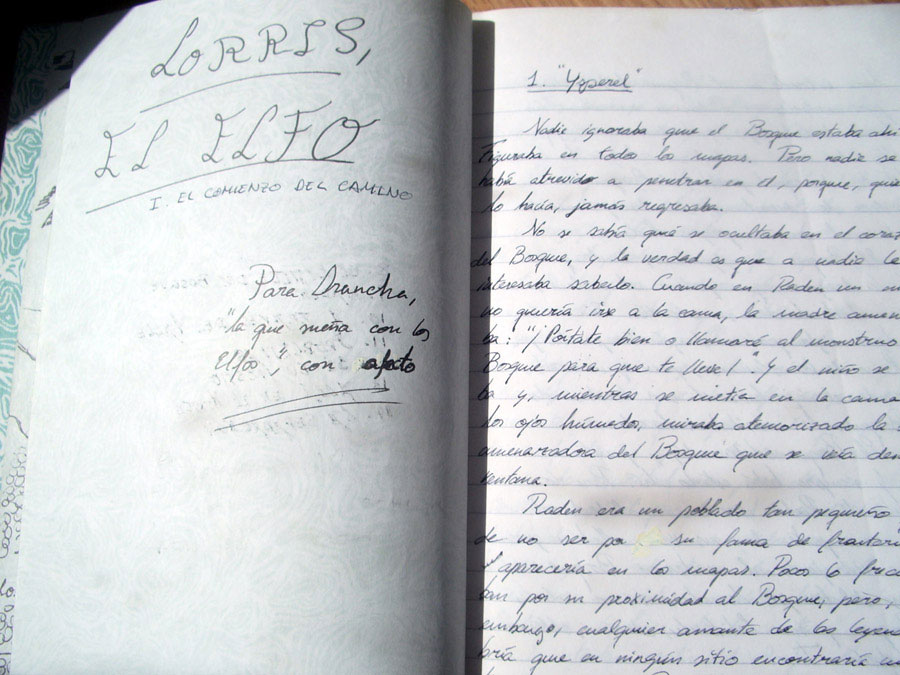 LORRIS,
EL ELFO
I. EL COMIENZO DEL CAMINO
Para Arancha,
"la que sueña con los
Elfos", con afecto
1. "Ysperel"
Nadie ignoraba que el Bosque estaba ahí
Figuraba en todos los mapas. Pero nadie se
había atrevido a penetrar en él, porque, quien
lo hacía, jamás regresaba.
No se sabía qué se ocultaba en el coraz
del Bosque, y la verdad es que a nadie le
interesaba saberlo. Cuando en Raden un
no quería irse a la cama, la madre amen
ba: "¡Pórtate bien o llamaré al monstruo
Bosque para que te lleve!". Y el niño se
ba y, mientras se metía en la cama
los ojos húmedos, miraba atemorizado la
amenazadora del Bosque que se veía des
ventana.
Raden era un poblado tan pequeño
de no ser por su fama de fronteri
aparecería en los mapas. Pocos lo frec
tan por su proximidad al Bosque, pero,
embargo, cualquier amante de las leyen
bría que en ningún sitio encontraría